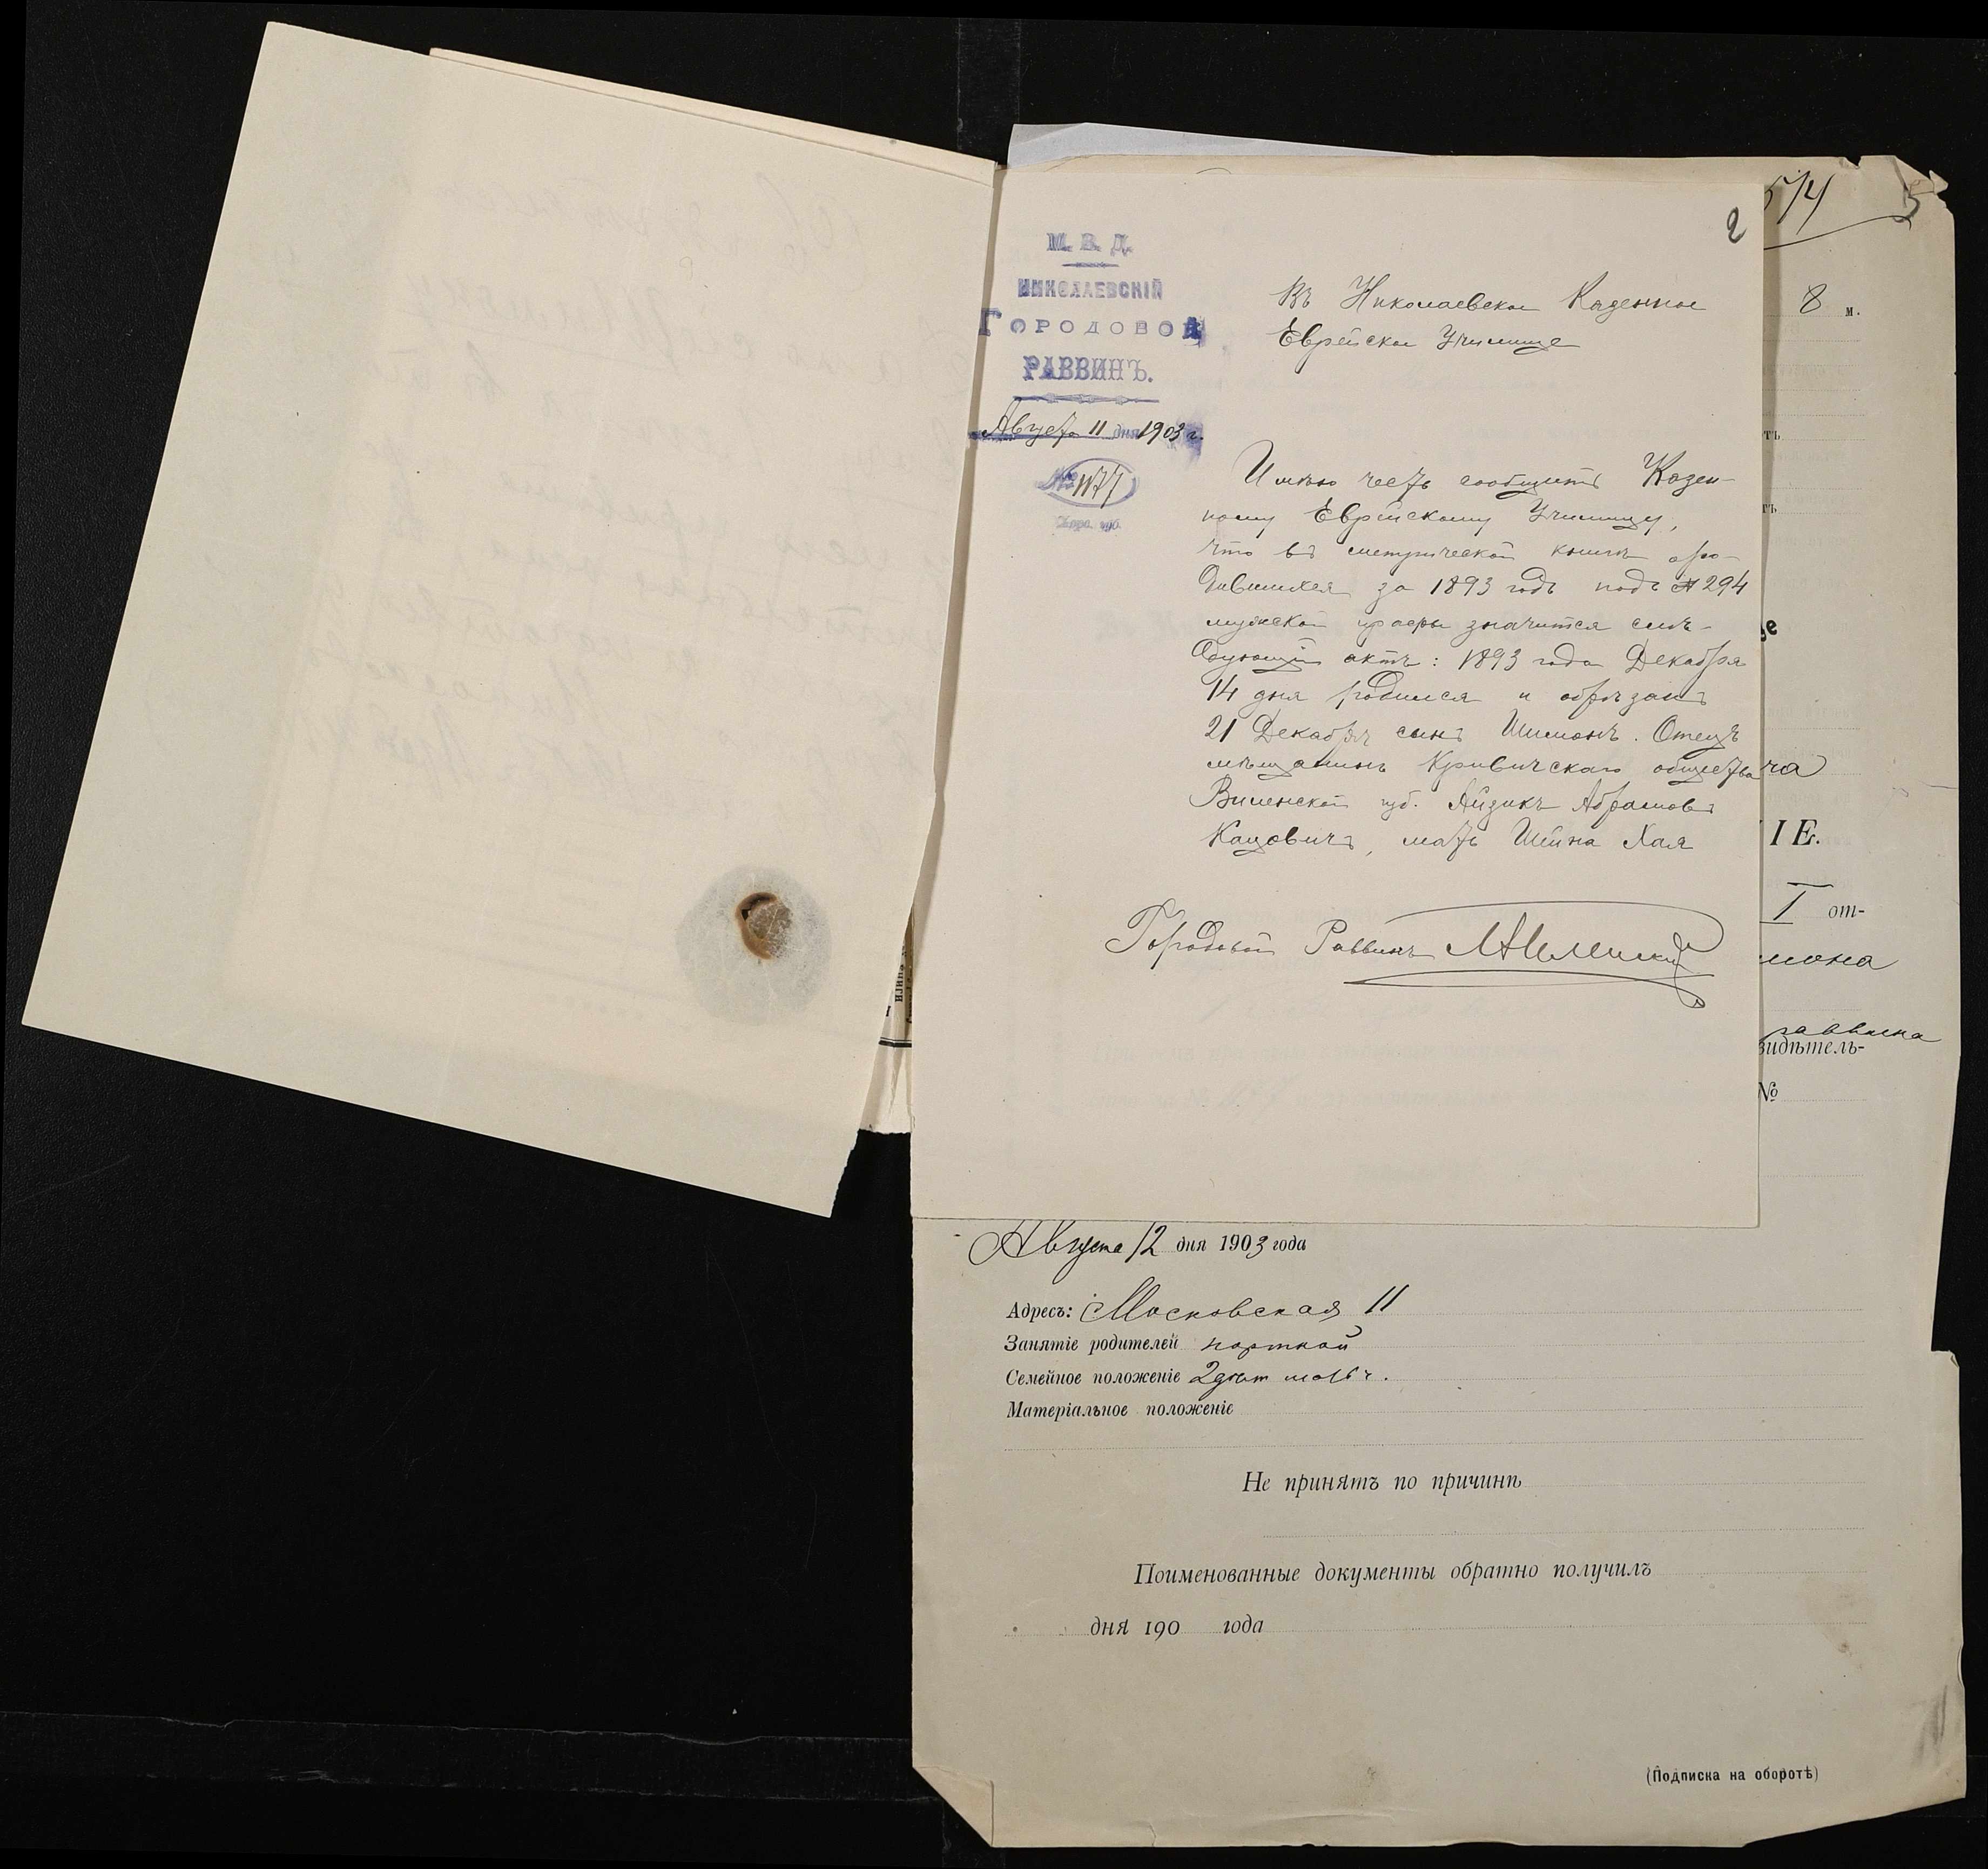 2
М. В. Д.
НИКОЛАЕВСКІЙ
ГОРОДОВОЙ
РАВВИНЪ.
Августа 11 дня 1903 г.
№ 1177
Херс. губ.
Въ Николаевское Казенное
Еврейское Училище
Имѣю честь сообщить Казен-
ному Еврейскому Училищу,
что въ метрической книгѣ о ро-
дившихся за 1893 годъ подъ № 294
мужской графы значится слѣ-
дующій актъ: 1893 года Декабря
14 дня родился и обрѣзанъ
21 Декабря сынъ Шимонъ. Отецъ
мѣщанинъ Кривичскаго общества
Виленской губ. Айзикъ Абрамовъ
Кацовичъ, мать Шейна Хая
Городовой Раввинъ
5/4
8 м.
тъ
ча
IE.
I от-
мона
раввина
видѣтель-
№
Августа 12 дня 1903 года
Адресъ: Московская 11
Занятіе родителей портной
Семейное положеніе 2
Матеріальное положеніе
Не принятъ по причинѣ
Поименованные документы обратно получилъ
дня 190 года
(Подписка на оборотѣ)